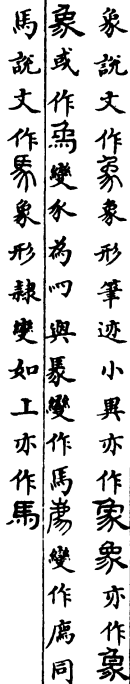 象說文作象象形筆迹小異亦作象象亦作象
象或作𤉢變豕為灬與馬變作馬廌變作廌同
馬說文作馬象形隸變如上亦作馬